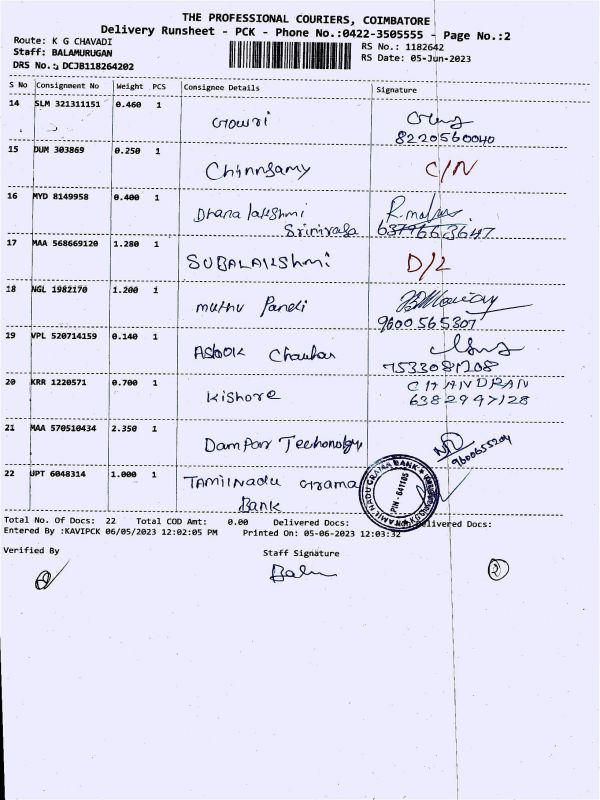 THE PROFESSIONAL COURIERS, COIMBATORE
Delivery Runsheet - PCK - Phone No.:0422-3505555 - Page No.:2
Route: K G CHAVADI
Staff: BALAMURUGAN
DRS No.: DCJB118264202
RS No.: 1182642
RS Date: 05-Jun-2023
S No Consignment No Weight PCS Consignee Details Signature
14 SLM 321311151 0.460 1 Gowri
8220560040
15 DUM 303869 0.250 1 Chinnsamy C/N
16 MYD 8149958 0.400 1 Dhana lakshmi
Srinivasa
17 MAA 568669120 1.280 1 SUBALAKShmi D/L
18 NGL 1982170 1.200 1 muthu Pandi
9600 565307
19 VPL 520714159 0.140 1 ASbOIK Chauhan
20 KRR 1220571 0.700 1 Kishore CHANDRAN
6382947128
21 MAA 570510434 2.350 1 Dampar Techonology
9600655204
22 JPT 6048314 1.000 1 TAmilnadu Grama
Bank
TAMIL NADU GRAMA BANK
PIN - 641105
Total No. Of Docs: 22 Total COD Amt: 0.00 Delivered Docs: elivered Docs:
Entered By :KAVIPCK 06/05/2023 12:02:05 PM Printed On: 05-06-2023 12:03:32
Verified By Staff Signature
Balu
2